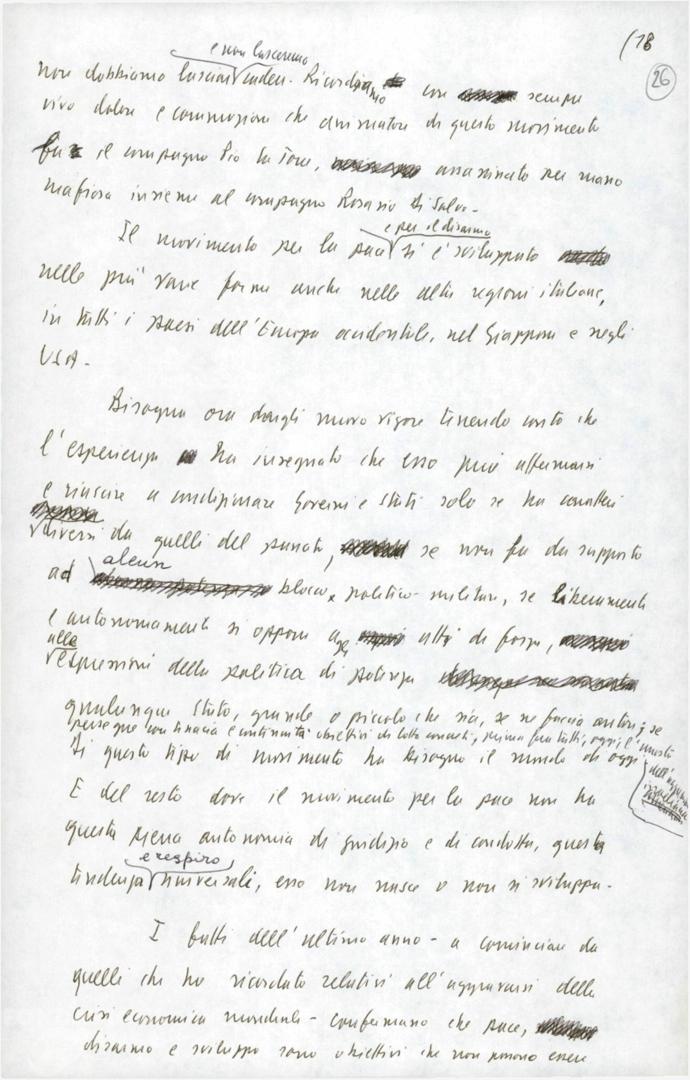 (18
26
e non lasceremo
non dobbiamo lasciar cadere. Ricordiamo con sempre
vivo dolore e commozione che animatore di questo movimento
fu il compagno Pio La Torre, assassinato per mano
mafiosa insieme al compagno Rosario Di Salvo.
e per il disarmo
Il movimento per la pace si è sviluppato
nelle più varie forme anche nelle altre regioni italiane,
in tutti i paesi dell'Europa occidentale, nel Giappone e negli
USA.
Bisogna ora dargli nuovo vigore tenendo conto che
l'esperienza ha insegnato che esso può affermarsi
e riuscire a condizionare Governi e Stati solo se ha caratteri
diversi da quelli del passato, se non fa da supporto
ad alcun blocco politico-militare, se liberamente
e autonomamente si oppone agli atti di forza,
alle
espressioni della politica di potenza
qualunque Stato, grande o piccolo che sia, se ne faccia autore; se
persegue con tenacia e continuità obiettivi di lotta concreti, prima fra tutti, oggi, l'arresto
dell'aggressione
israeliana
Di questo tipo di movimento ha bisogno il mondo di oggi
E del resto dove il movimento per la pace non ha
questa piena autonomia di giudizio e di condotta, questa
e respiro
tendenza universali, esso non nasce o non si sviluppa.
I fatti dell'ultimo anno - a cominciare da
quelli che ho ricordato relativi all'aggravarsi della
crisi economica mondiale - confermano che pace,
disarmo e sviluppo sono obiettivi che non possono essere